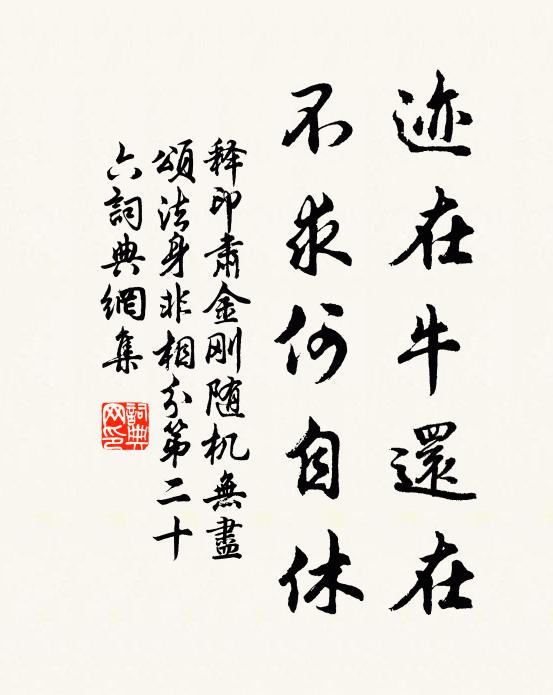 迹在牛還在
不求何自休
释印肅金刚随机無盡
頌法身非相分第二十
六詞典網集
詞典网印